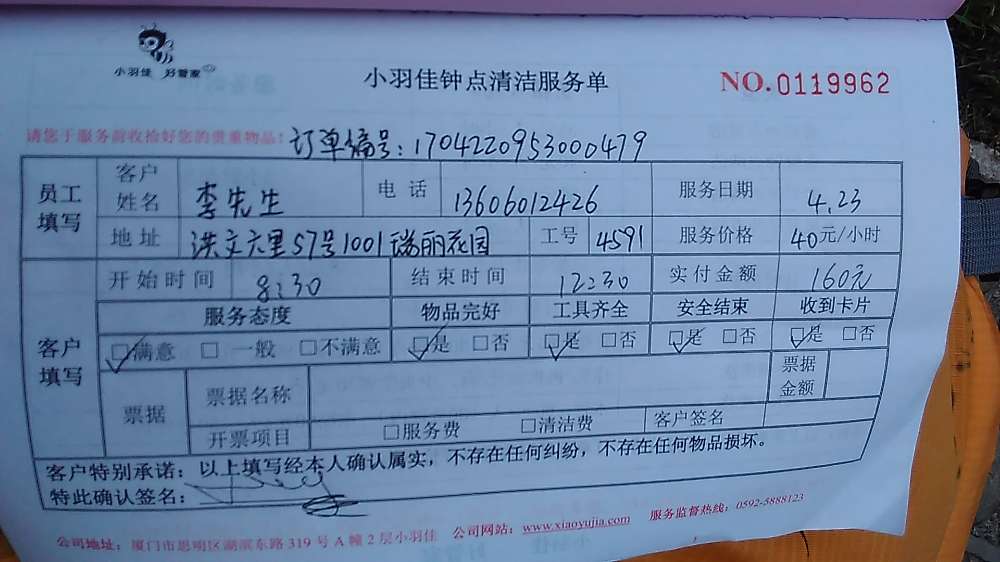 小羽佳 好管家
小羽佳钟点清洁服务单
NO.0119962
请您于服务前收捡好您的贵重物品!
订单编号:1704220953000479
员工填写 客户姓名 李先生 电话 13606012426 服务日期 4.23
地址 洪文六里57号1001瑞丽花园 工号 4591 服务价格 40元/小时
客户填写 开始时间 8:30 结束时间 12:30 实付金额 160元
服务态度 物品完好 工具齐全 安全结束 收到卡片
☑满意 □一般 □不满意 ☑是 □否 ☑是 □否 ☑是 □否 ☑是 □否
票据 票据名称 票据金额
开票项目 □服务费 □清洁费 客户签名
客户特别承诺:以上填写经本人确认属实,不存在任何纠纷,不存在任何物品损坏。
特此确认签名:
公司地址:厦门市思明区湖滨东路319号A幢2层小羽佳 公司网站:www.xiaoyujia.com 服务监督热线:0592-5888123